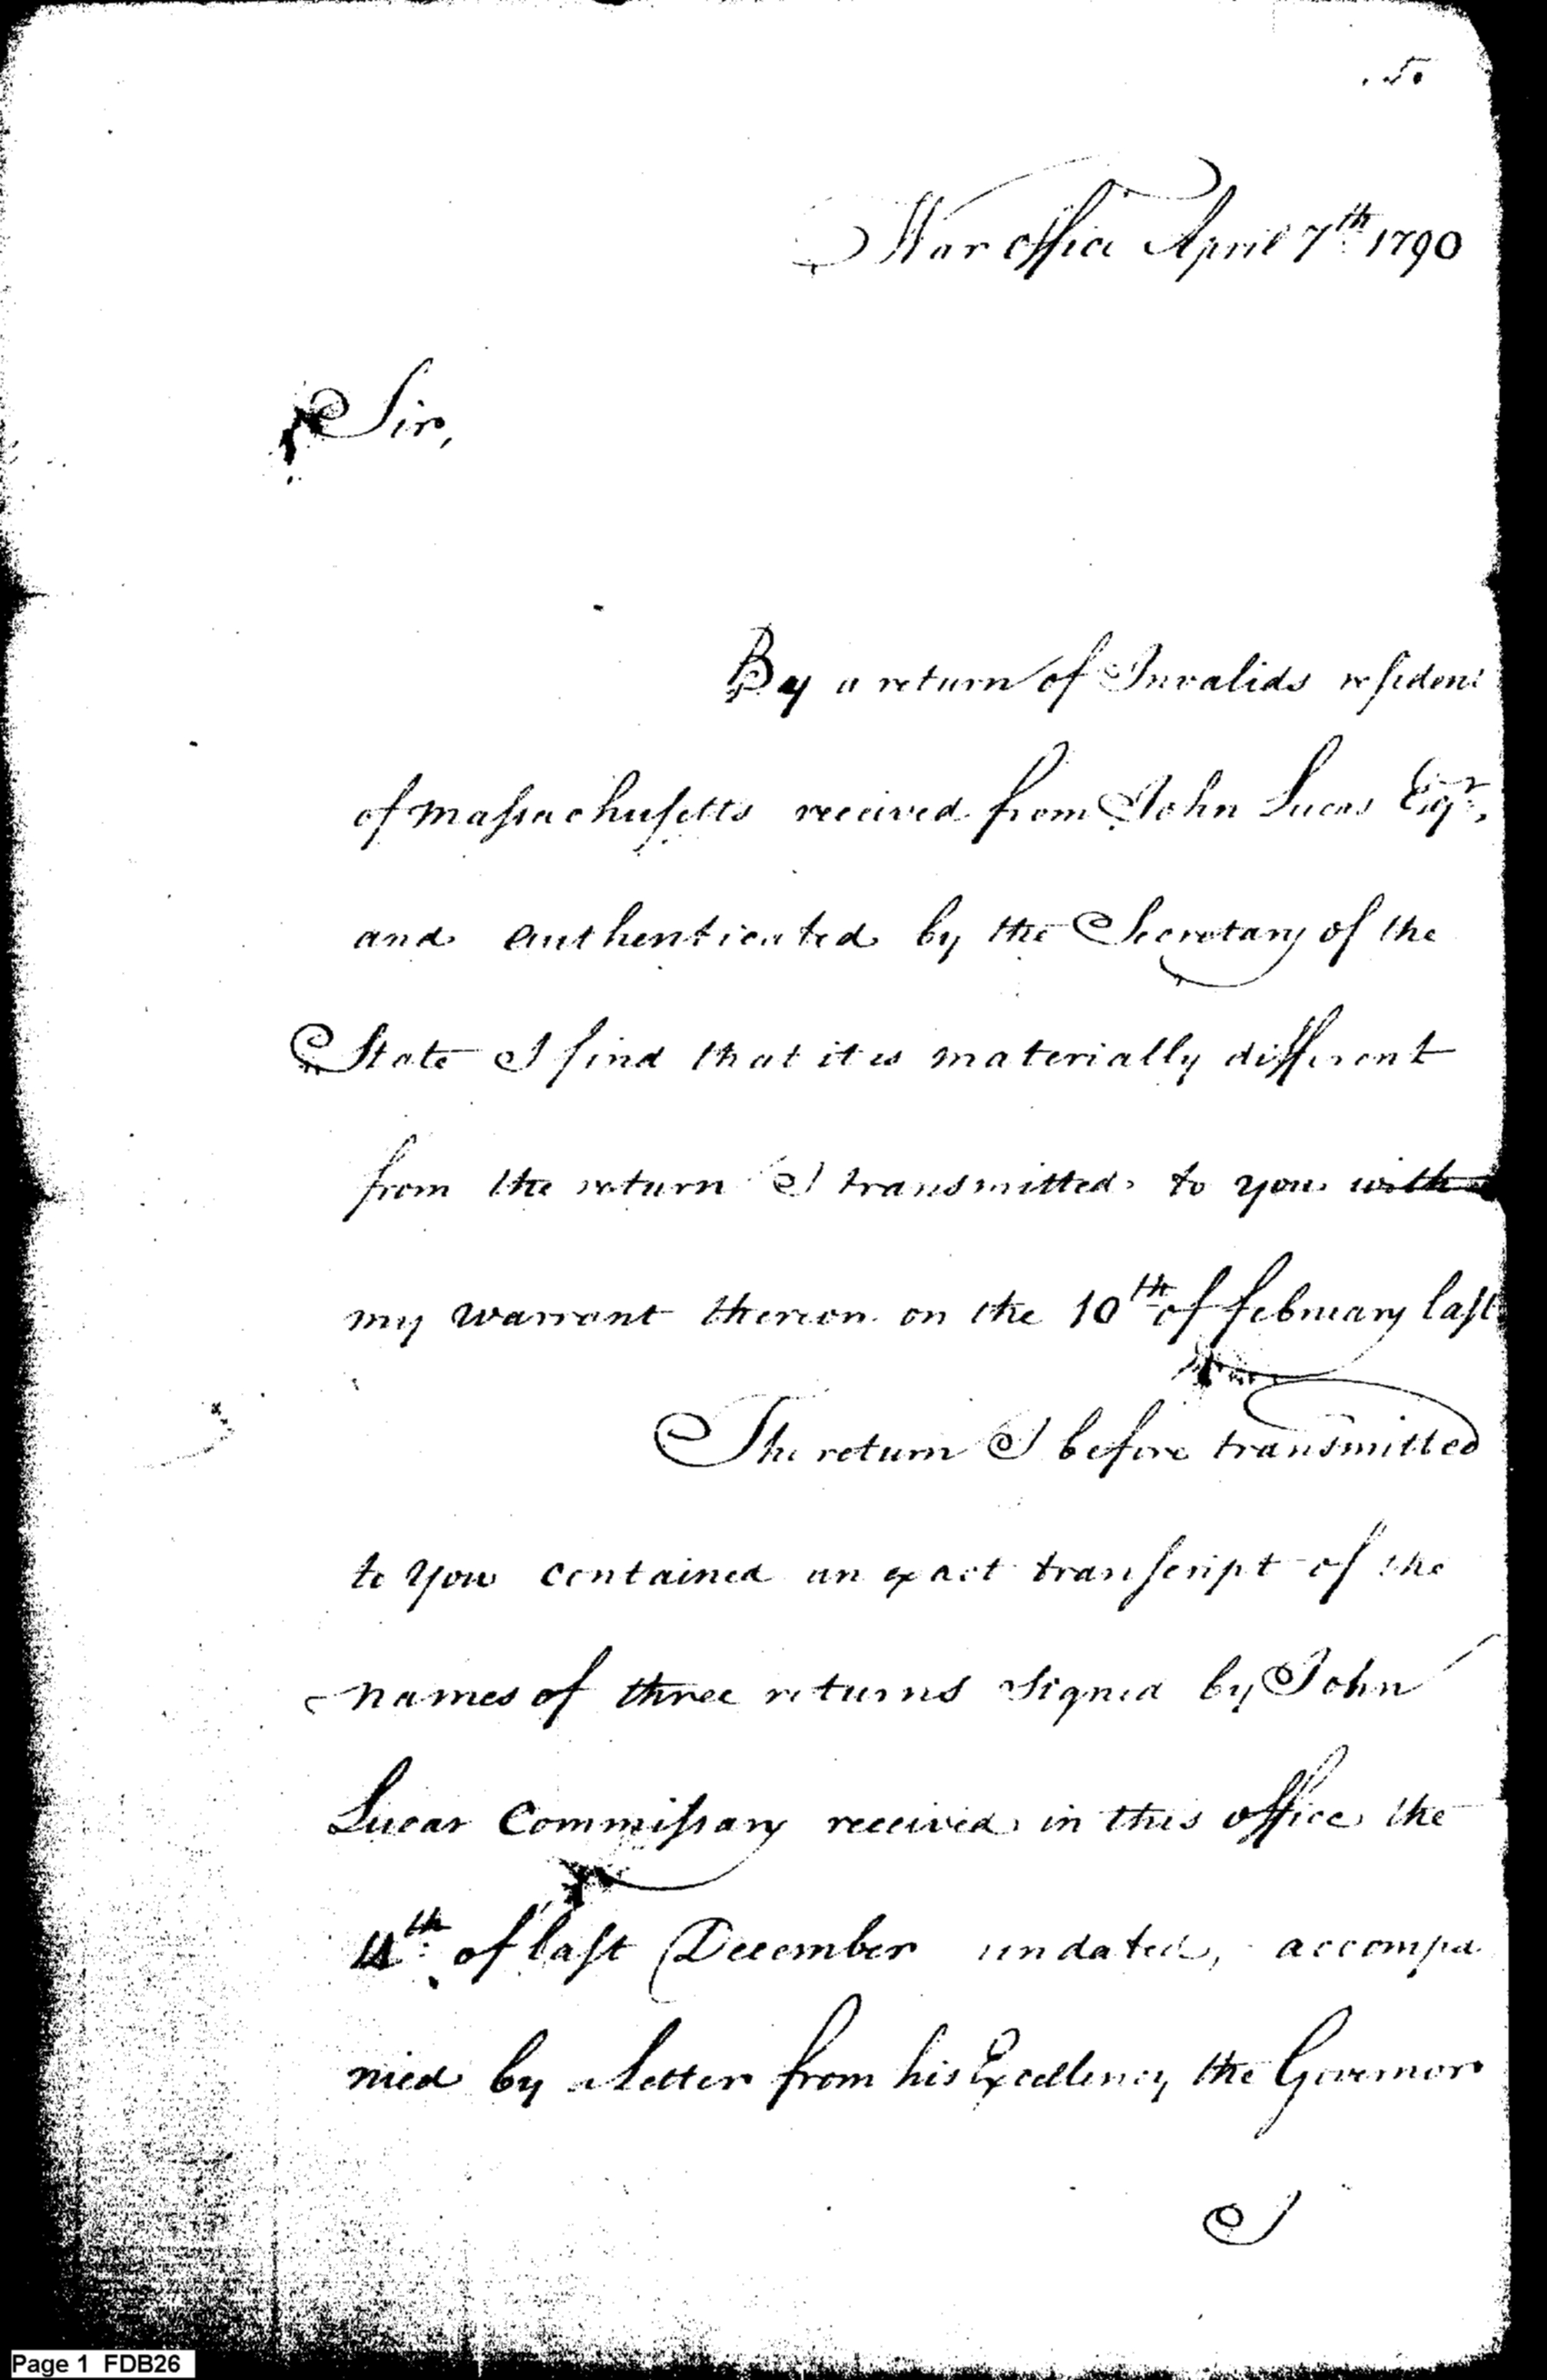 .5.
War office April 7th 1790
Sir,
By a return of Invalids resident
of Massachusetts received from John Lucas Esqr,
and authenticated by the Secretary of the
State I find that it is materially different
from the return I transmitted to you with
my warrant thereon on the 10th of february last
The return I before transmitted
to you contained an exact transcript of the
names of three returns signed by John
Lucas Commissary received in this office the
of last December undated, accompa
nied by a letter from his Excellency the Governor
I
Page 1 FDB26